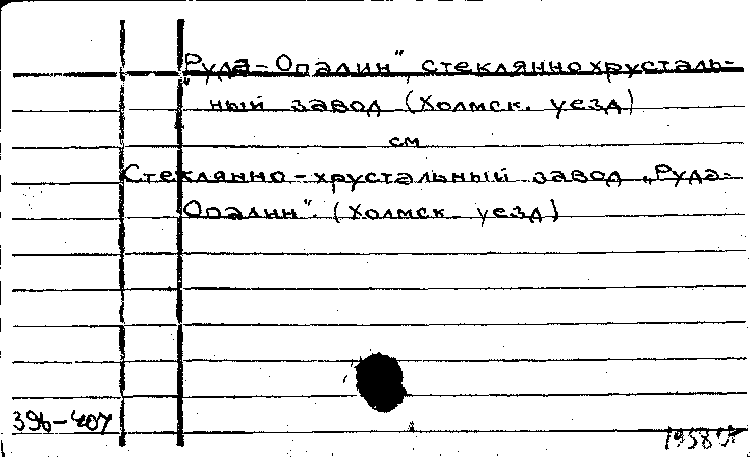 „Руда-Опалин", стекляннохрусталь-
ный завод (Холмск. уезд)
см
Стеклянно-хрустальный завод „Руда-
Опалин". (Холмск. уезд)
396-407